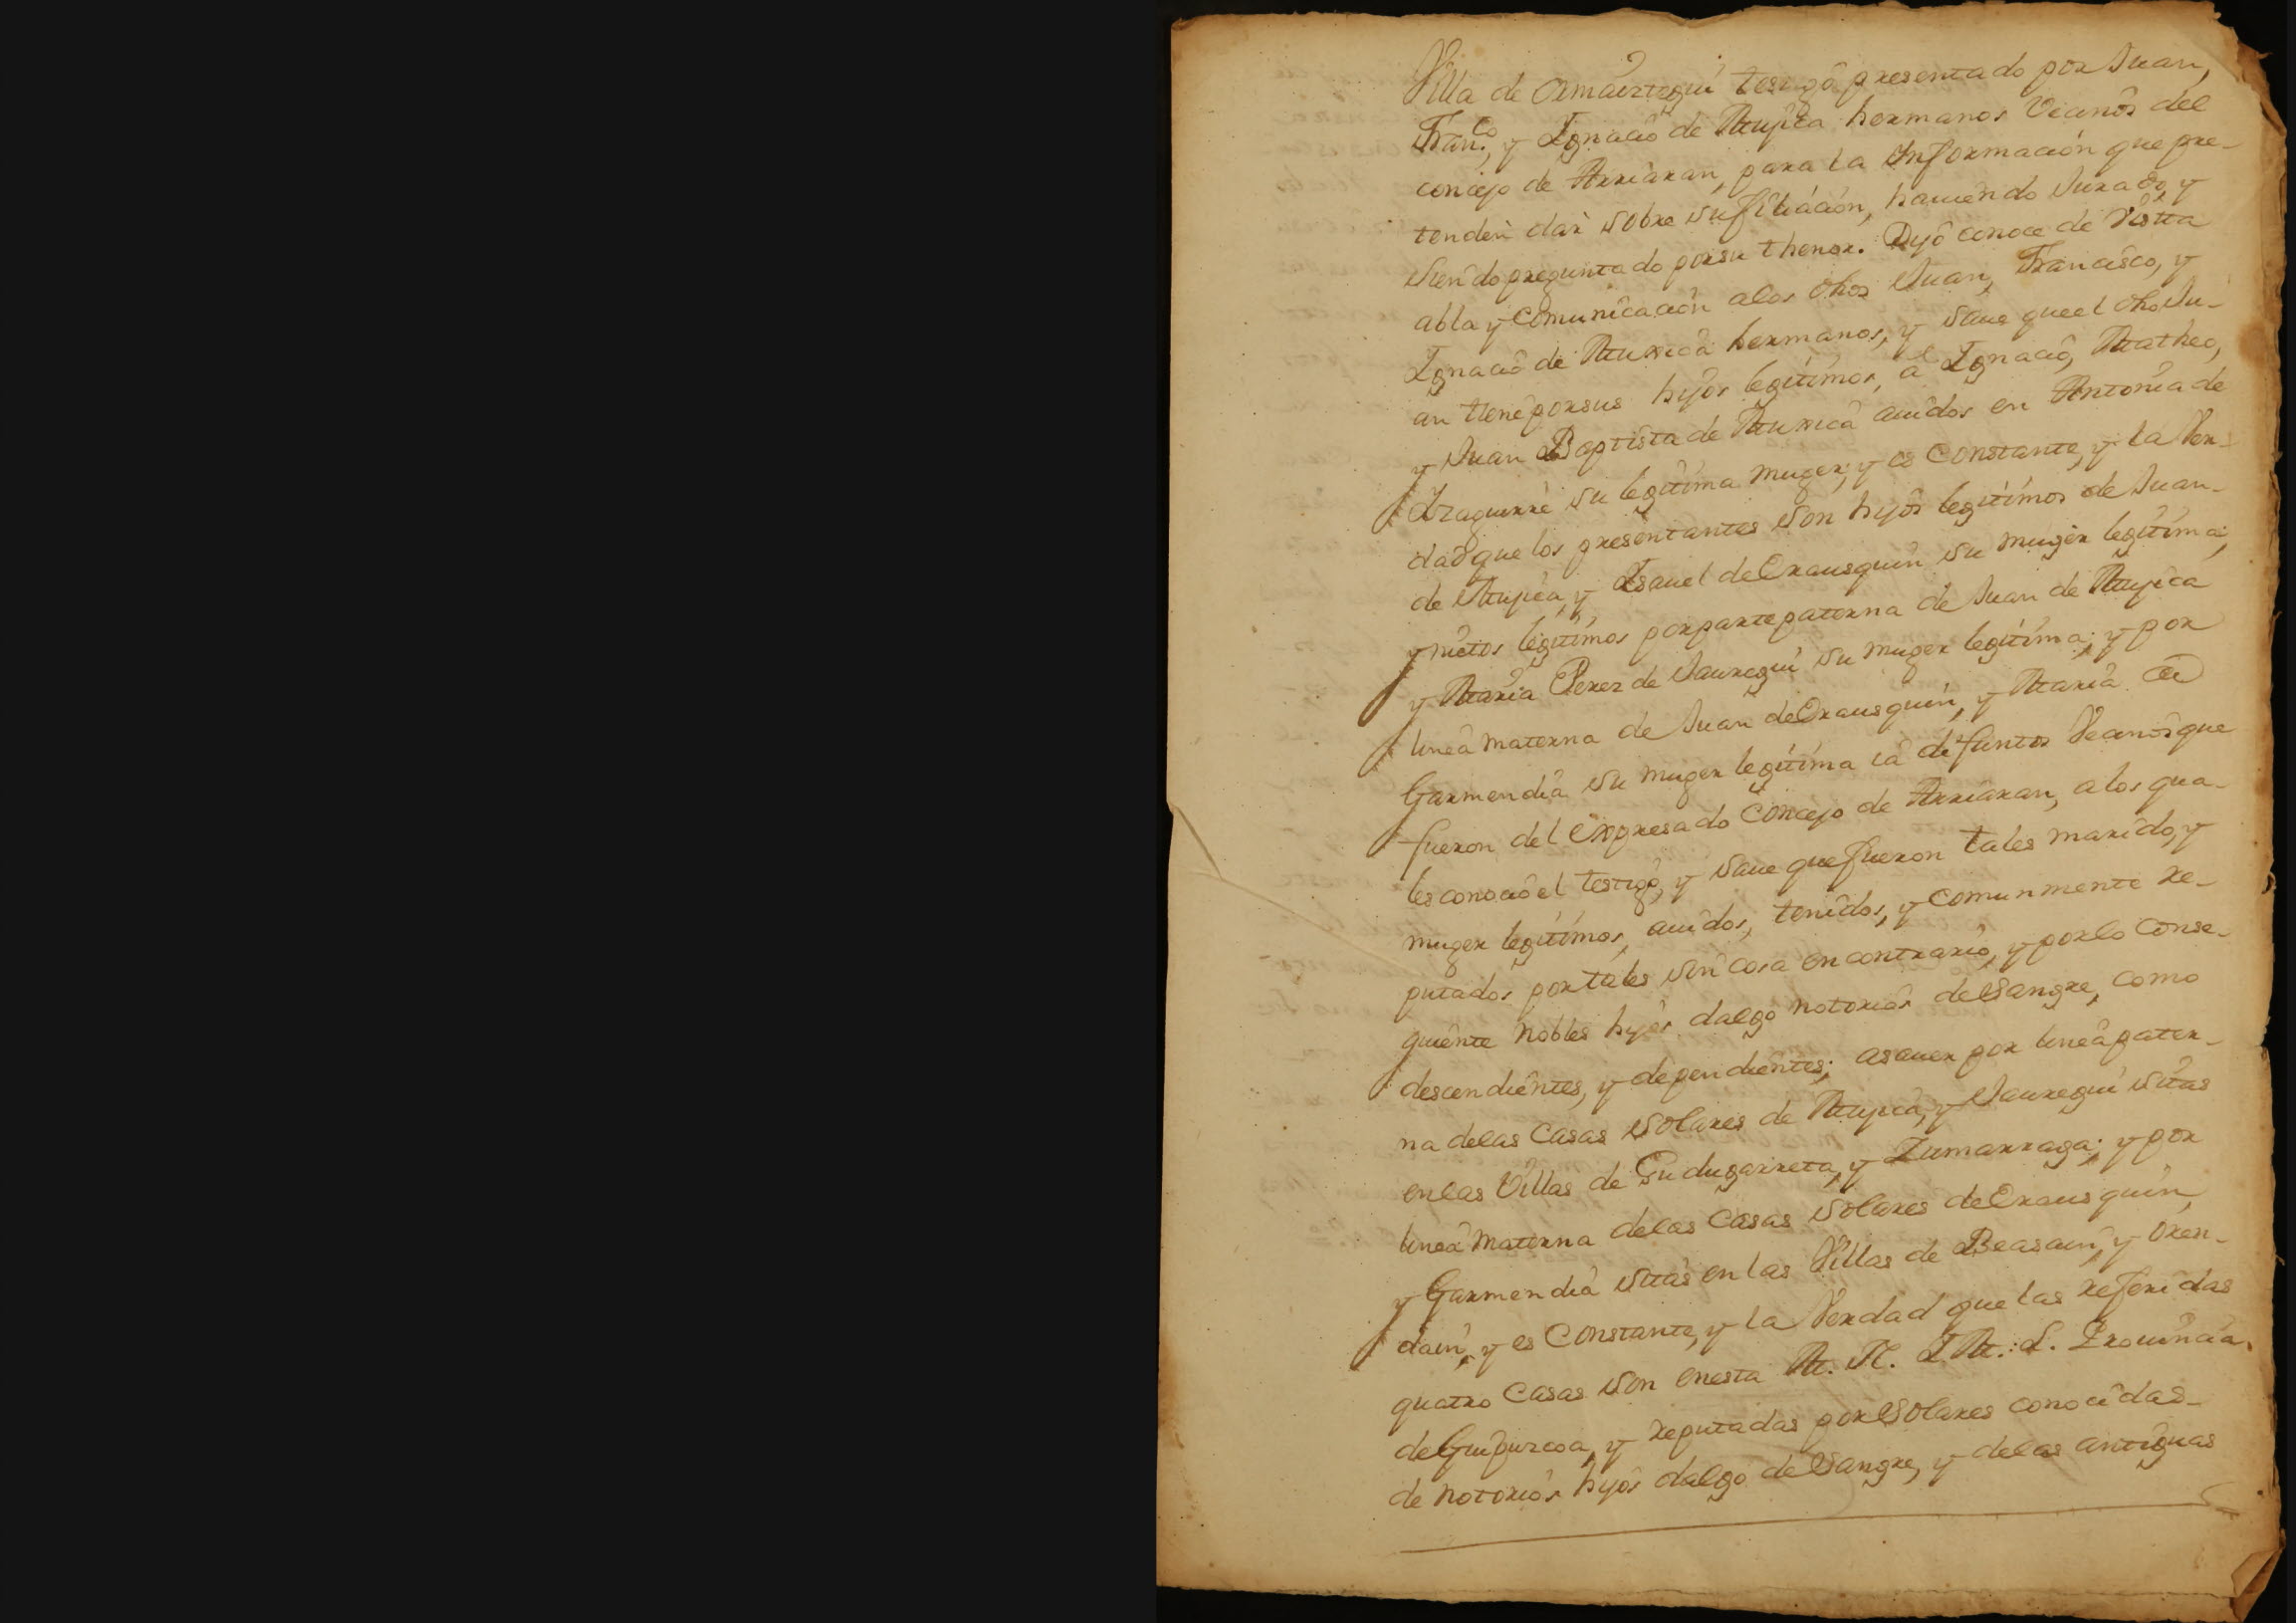 Villa de Ormaiztegui testigo presentado por Juan,
Fran.co, y Ignacio de Mujica hermanos Vecinos del
concejo de Arriaran, para la Informacion que pre-
tenden dar sobre su filiacion, haviendo Jurado, y
siendo preguntado por su thenor: Dijo conoce de Vista
abla y Comunicacion a los dhos Juan, Francisco, y
Ignacio de Muxica hermanos, y save que el dho Ju-
an tiene por sus hijos legitimos, a Ignacio, Matheo,
y Juan Baptista de Muxica avidos en Antonia de
Izaguirre su legitima muger; y es Constante, y la Ver-
dad que los presentantes son hijos legitimos de Juan
de Mujica, y Isavel de Erausquin su muger legitima,
y nietos legitimos por parte paterna de Juan de Mujica
y Maria Perez de Jauregui su muger legitima; y por
linea materna de Juan de Erausquin, y Maria de
Garmendia su muger legitima ia difuntos Vecinos que
fueron del Expresado Concejo de Arriaran, a los qua-
les conocio el testigo, y save que fueron tales marido, y
muger legitimos, avidos, tenidos, y comunmente re-
putados por tales sin cosa en contrario, y por lo conse-
guiente Nobles hijos dalgo notorios de Sangre, como
descendientes, y dependientes; asaver por linea pater-
na de las Casas Solares de Mujica, y Jauregui sitas
en las Villas de Gudugarreta, y Zumarraga; y por
linea Materna de las Casas Solares de Erausquin,
y Garmendia sitas en las Villas de Beasain, y Oren-
dain, y es Constante, y la Verdad que las referidas
quatro Casas son en esta M. N. I M. L. Provincia
de Guipuzcoa, y reputadas por Solares conocidas
de notorios hijos dalgo de Sangre, y de las antiguas